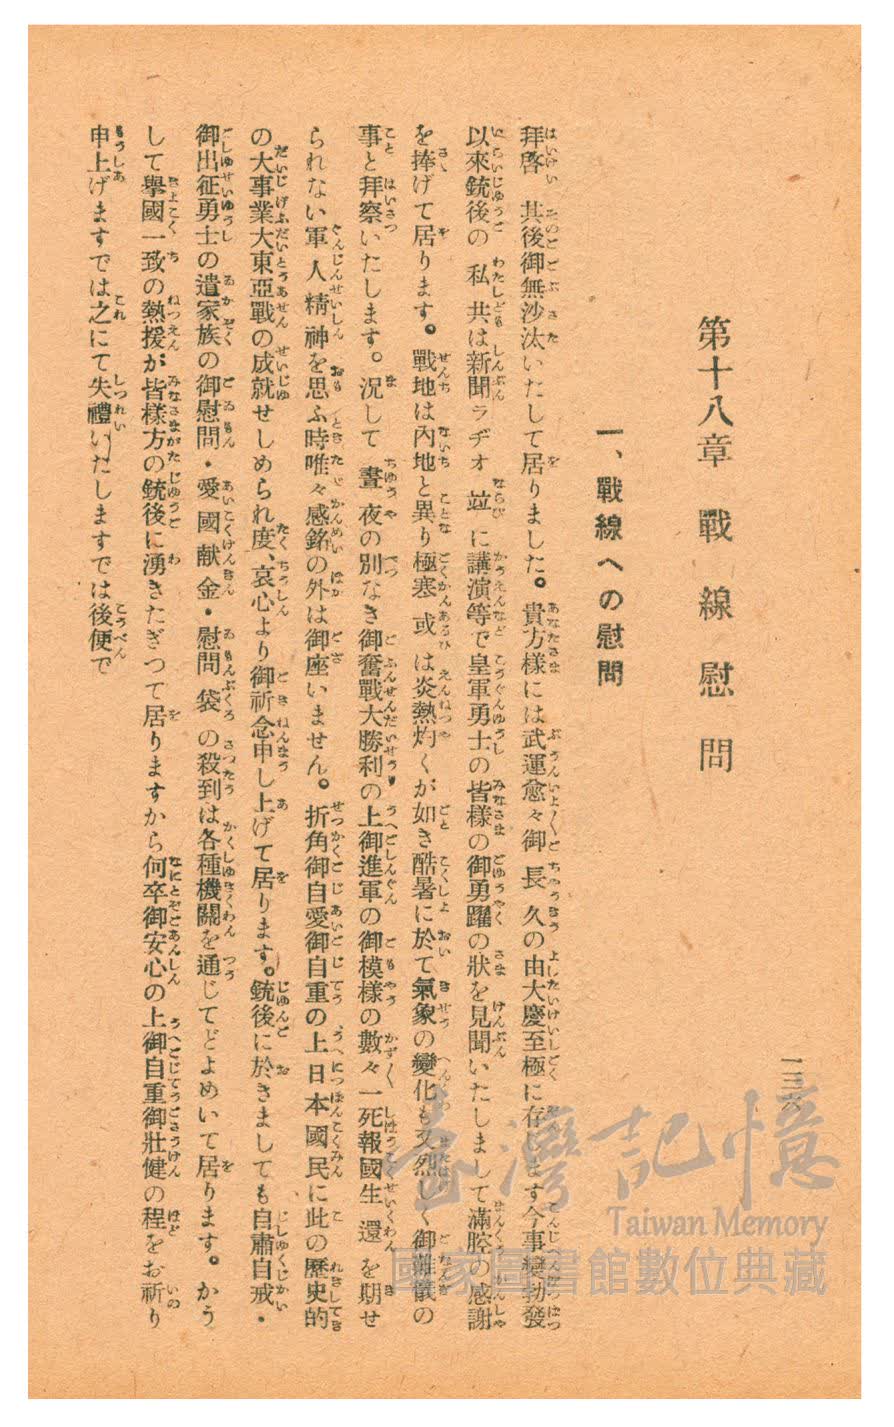 一三六
第十八章 戰線慰問
一、戰線への慰問
拜啓 其後御無沙汰いたして居りました。貴方樣には武運愈々御長久の由大慶至極に存じます今事變勃發
以來銃後の私共は新聞ラヂオ竝に講演等で皇軍勇士の皆樣の御勇躍の狀を見聞いたしまして滿腔の感謝
を捧げて居ります。戰地は內地と異り極寒或は炎熱灼くが如き酷暑に於て氣象の變化も亦烈しく御難儀の
事と拜察いたします。況して晝夜の別なき御奮戰大勝利の上御進軍の御模樣の數々一死報國生還を期せ
られない軍人精神を思ふ時唯々感銘の外は御座いません。折角御自愛御自重の上日本國民に此の歷史的
の大事業大東亞戰の成就せしめられ度、衷心より御祈念申し上げて居ります。銃後に於きましても自肅自戒・
御出征勇士の遺家族の御慰問・愛國献金・慰問袋の殺到は各種機關を通じてどよめいて居ります。かう
して擧國一致の熱援が皆樣方の銃後に湧きたぎつて居りますから何卒御安心の上御自重御壯健の程をお祈り
申上げますでは之にて失禮いたしますでは後便で
臺灣記憶
Taiwan Memory
國家圖書館數位典藏